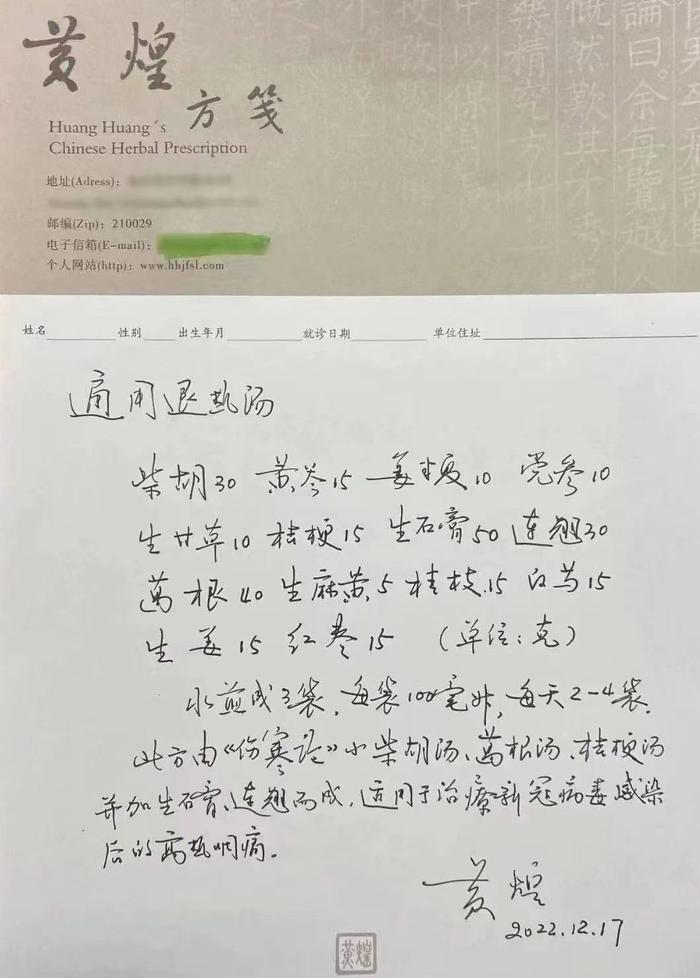 黄煌
方笺
Huang Huang´s
Chinese Herbal Prescription
地址(Adress)：
邮编(Zip)：210029
电子信箱(E-mail)：
个人网站(http)：www.hhjfsl.com
姓名 性别 出生年月 就诊日期 单位住址
通用退热汤
柴胡30 黄芩15 姜半夏10 党参10
生甘草10 桔梗15 生石膏50 连翘30
葛根40 生麻黄5 桂枝15 白芍15
生姜15 红枣15 （单位：克）
水煎成3袋，每袋100毫升，每天2-4袋。
此方由《伤寒论》小柴胡汤、葛根汤、桔梗汤
并加生石膏、连翘而成，适用于治疗新冠病毒感染
后的高热咽痛。
黄煌
2022.12.17
黄煌